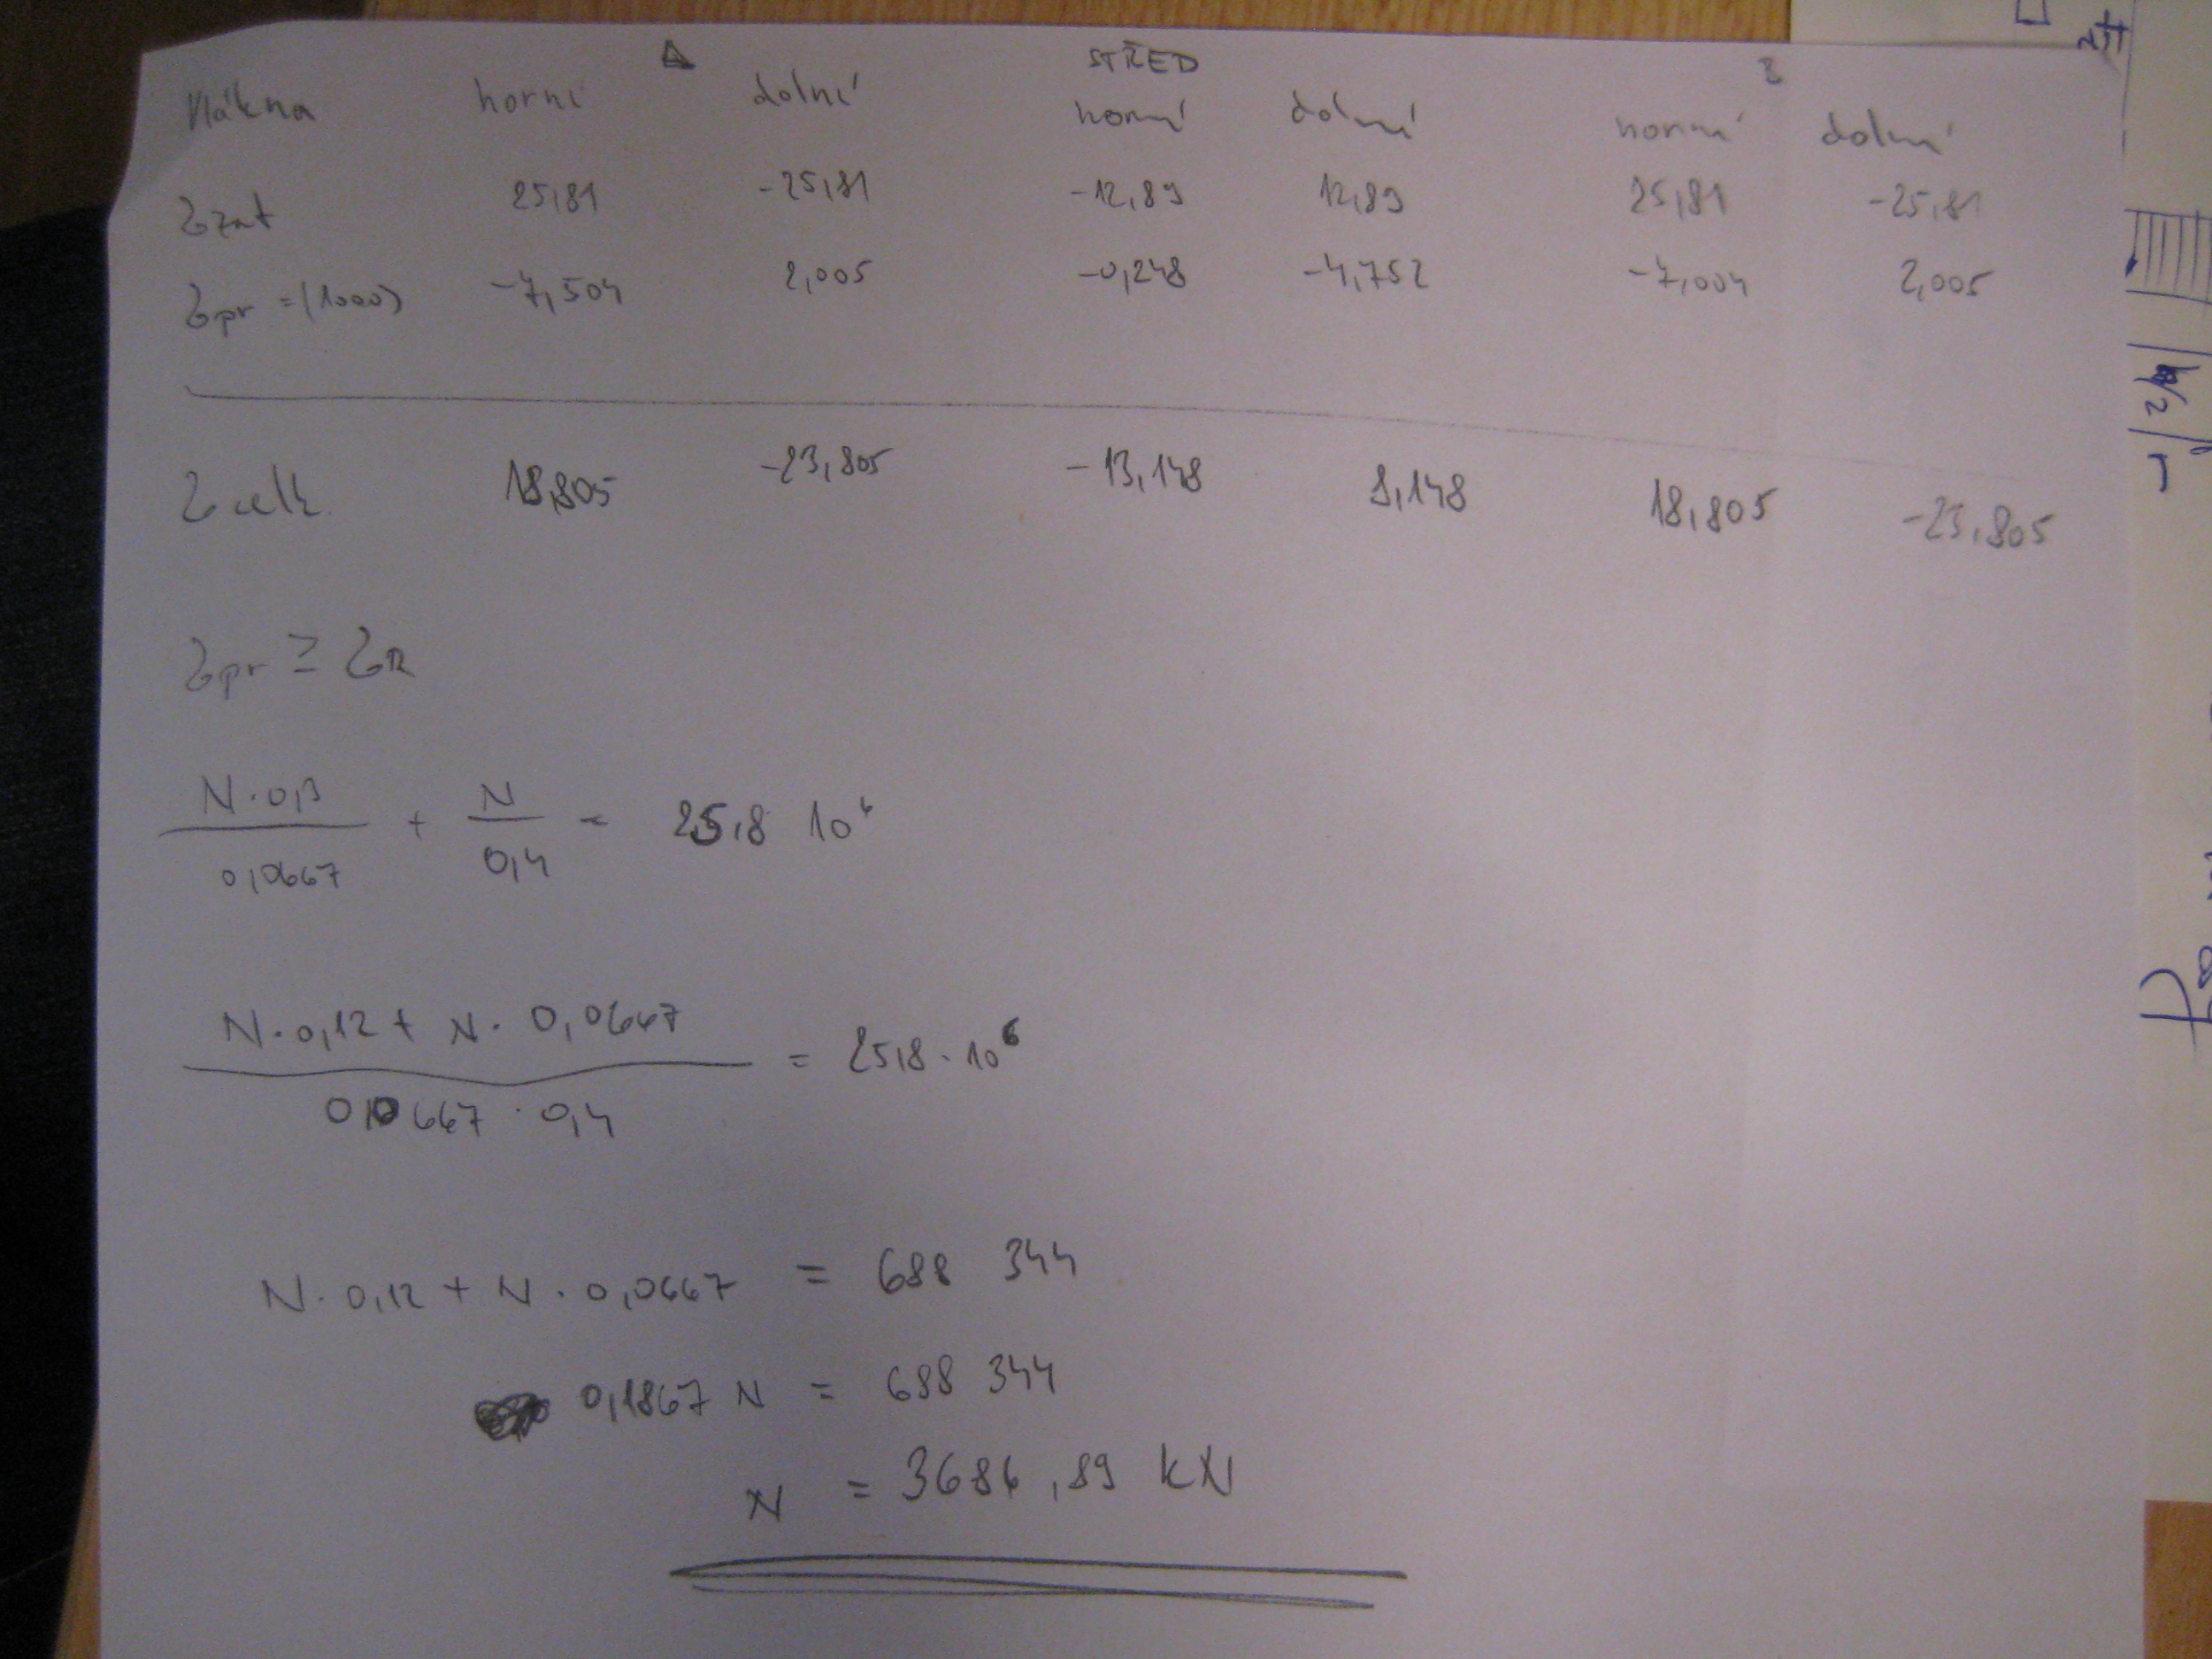 A STŘED B
Vlákna horní dolní horní dolní horní dolní
σzat 25,81 -25,81 -12,89 12,89 25,81 -25,81
σpr =(1000) -7,504 2,005 -0,248 -4,752 -7,004 2,005
σcelk. 18,805 -23,805 -13,148 8,148 18,805 -23,805
σpr ≥ σR
N·0,3 / 0,0667 + N / 0,4 = 25,8 10⁶
N·0,12 + N·0,0667 / 0,0667·0,4 = 25,8·10⁶
N·0,12 + N·0,0667 = 688 344
0,1867 N = 688 344
N = 3686,89 kN